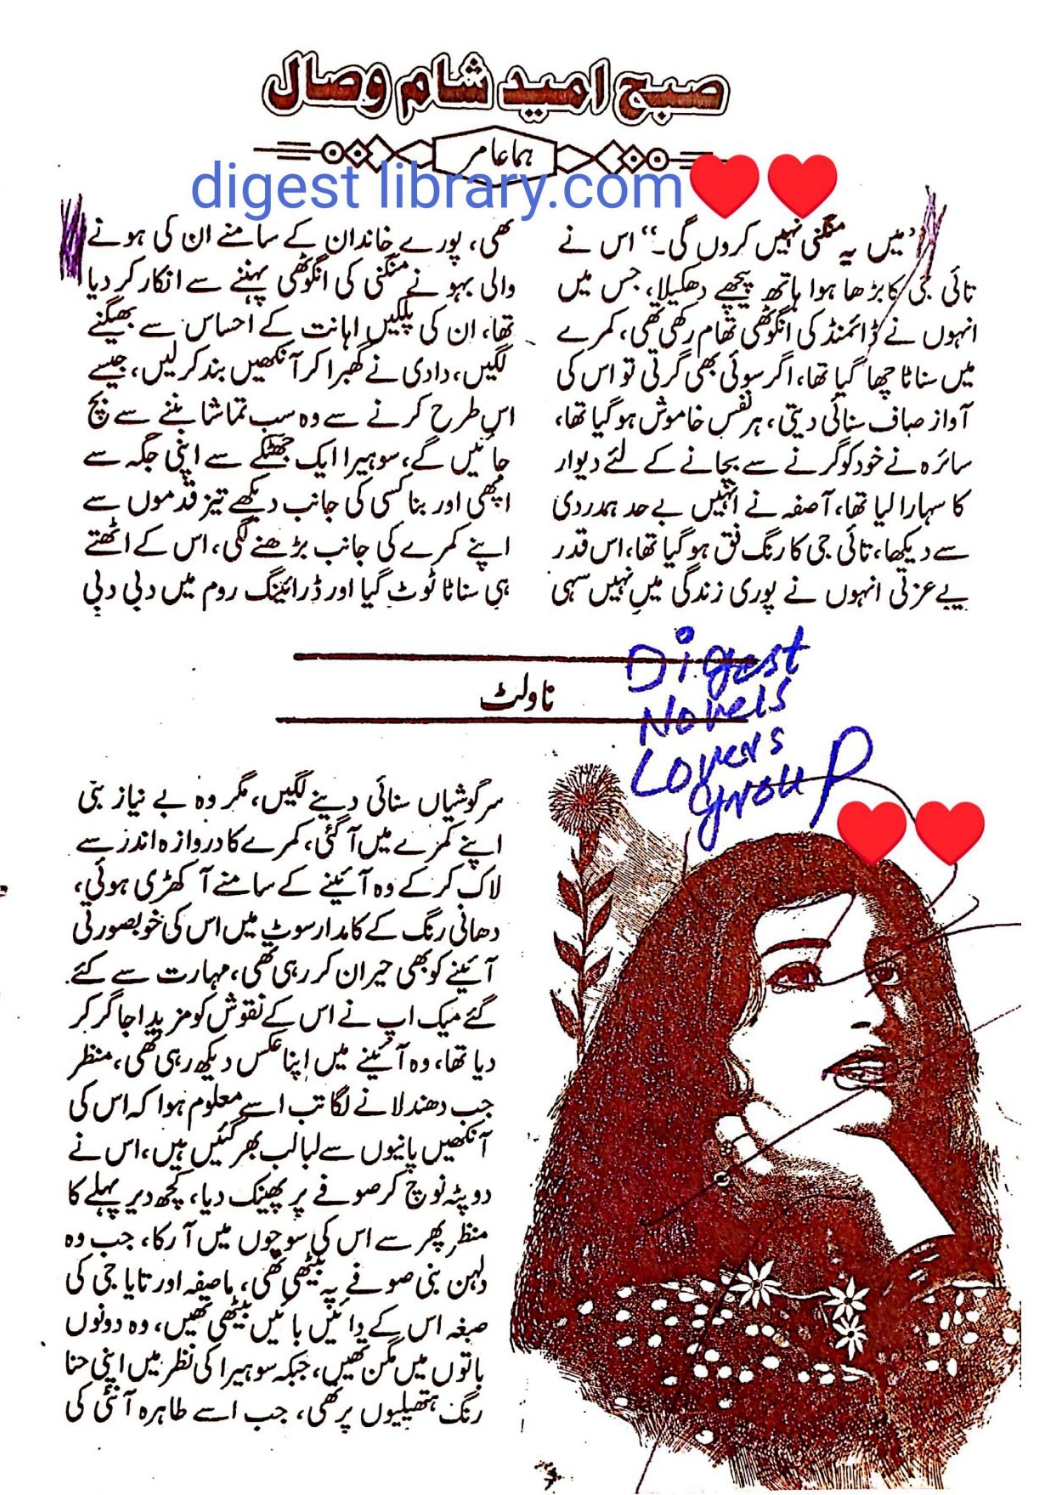 صبح امید شام وصال
ہما عامر
digest library.com
”میں یہ منگنی نہیں کروں گی۔“ اس نے
تائی جی کا بڑھا ہوا ہاتھ پیچھے دھکیلا، جس میں
انہوں نے ڈائمنڈ کی انگوٹھی تھام رکھی تھی، کمرے
میں سناٹا چھا گیا تھا، اگر سوئی بھی گرتی تو اس کی
آواز صاف سنائی دیتی، ہر نفس خاموش ہو گیا تھا،
سائرہ نے خود کو گرنے سے بچانے کے لئے دیوار
کا سہارا لیا تھا، آصفہ نے انہیں بے حد ہمدردی
سے دیکھا، تائی جی کا رنگ فق ہو گیا تھا، اس قدر
بے عزتی انہوں نے پوری زندگی میں نہیں سہی
تھی، پورے خاندان کے سامنے ان کی ہونے
والی بہو نے منگنی کی انگوٹھی پہننے سے انکار کر دیا
تھا، ان کی پلکیں اہانت کے احساس سے بھیگنے
لگیں، دادی نے گھبرا کر آنکھیں بند کر لیں، جیسے
اس طرح کرنے سے وہ سب تماشا بننے سے بچ
جائیں گے، سوہیرا ایک جھٹکے سے اپنی جگہ سے
اٹھی اور بنا کسی کی جانب دیکھے تیز قدموں سے
اپنے کمرے کی جانب بڑھنے لگی، اس کے اٹھتے
ہی سناٹا ٹوٹ گیا اور ڈرائینگ روم میں دبی دبی
ناولٹ
Digest
Novels
Lovers
group
سرگوشیاں سنائی دینے لگیں، مگر وہ بے نیاز بنی
اپنے کمرے میں آ گئی، کمرے کا دروازہ اندر سے
لاک کر کے وہ آئینے کے سامنے آ کھڑی ہوئی،
دھانی رنگ کے کامدار سوٹ میں اس کی خوبصورتی
آئینے کو بھی حیران کر رہی تھی، مہارت سے کئے
گئے میک اپ نے اس کے نقوش کو مزید اجاگر کر
دیا تھا، وہ آئینے میں اپنا عکس دیکھ رہی تھی، منظر
جب دھندلانے لگا تب اسے معلوم ہوا کہ اس کی
آنکھیں پانیوں سے لبالب بھر گئیں ہیں، اس نے
دوپٹہ نوچ کر صوفے پر پھینک دیا، کچھ دیر پہلے کا
منظر پھر سے اس کی سوچوں میں آ رکا، جب وہ
دلہن بنی صوفے پہ بیٹھی تھی، ماصفہ اور تایا جی کی
صبغہ اس کے دائیں بائیں بیٹھی تھیں، وہ دونوں
باتوں میں مگن تھیں، جبکہ سوہیرا کی نظر میں اپنی حنا
رنگ ہتھیلیوں پر تھی، جب اسے طاہرہ آنٹی کی